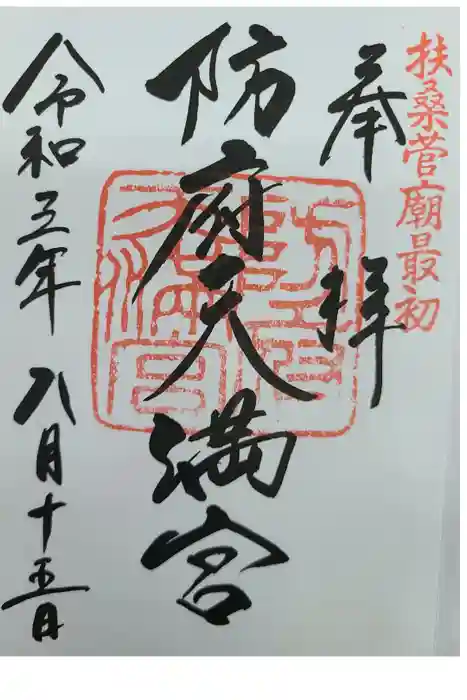 扶桑菅廟最初
奉拝
防府天満宮
令和三年八月十五日